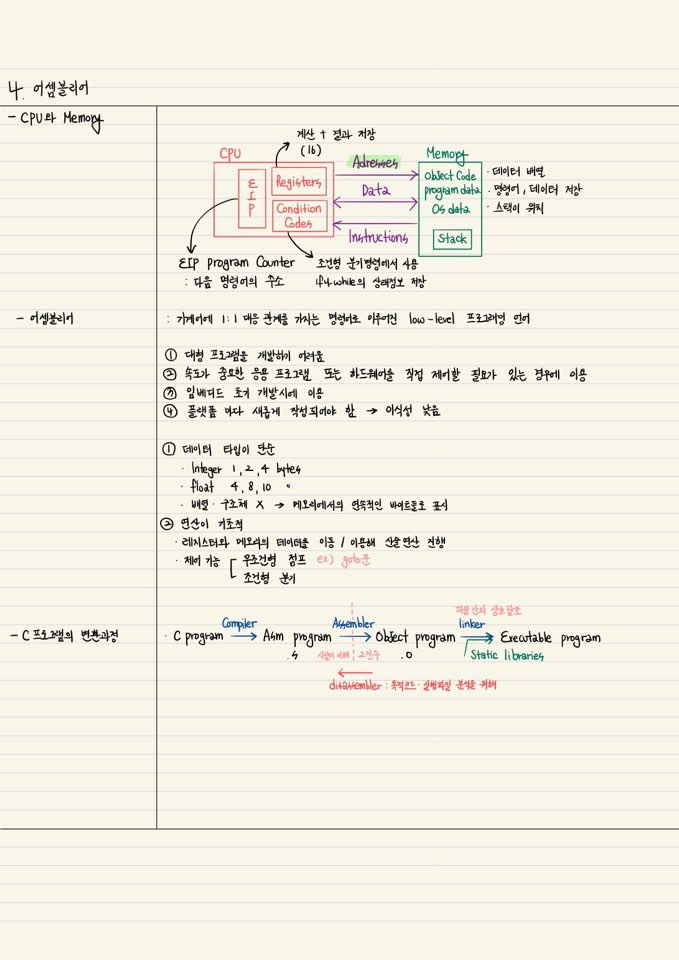 4. 어셈블리어
- CPU와 Memory
계산 + 결과 저장
(16)
CPU
Adresses
Memory
EIP
Registers
Data
Object Code
program data
OS data
· 데이터 배열
· 명령어, 데이터 저장
· 스택이 위치
Condition Codes
Instructions
Stack
EIP program Counter
: 다음 명령어의 주소
조건형 분기명령에서 사용
if나 while의 상태정보 저장
- 어셈블리어
: 기계어에 1:1 대응 관계를 가지는 명령어로 이루어진 low-level 프로그래밍 언어
① 대형 프로그램을 개발하기 어려움
② 속도가 중요한 응용 프로그램 또는 하드웨어를 직접 제어할 필요가 있는 경우에 이용
③ 임베디드 초기 개발시에 이용
④ 플랫폼 마다 새롭게 작성되어야 함 → 이식성 낮음
① 데이터 타입이 단순
· Integer 1, 2, 4 bytes
· float 4, 8, 10 〃
· 배열·구조체 X → 메모리에서의 연속적인 바이트들로 표시
② 연산이 기초적
· 레지스터와 메모리의 데이터를 이동 / 이용해 산술연산 진행
· 제어 기능 무조건형 점프 ex) goto문
조건형 분기
- C 프로그램의 변환과정
· C program
Compiler →
Asm program
.s
Assembler →
Object program
.o
linker →
Executable program
Static libraries
사람이 이해
←
disassembler : 목적코드·실행파일 분석을 위해